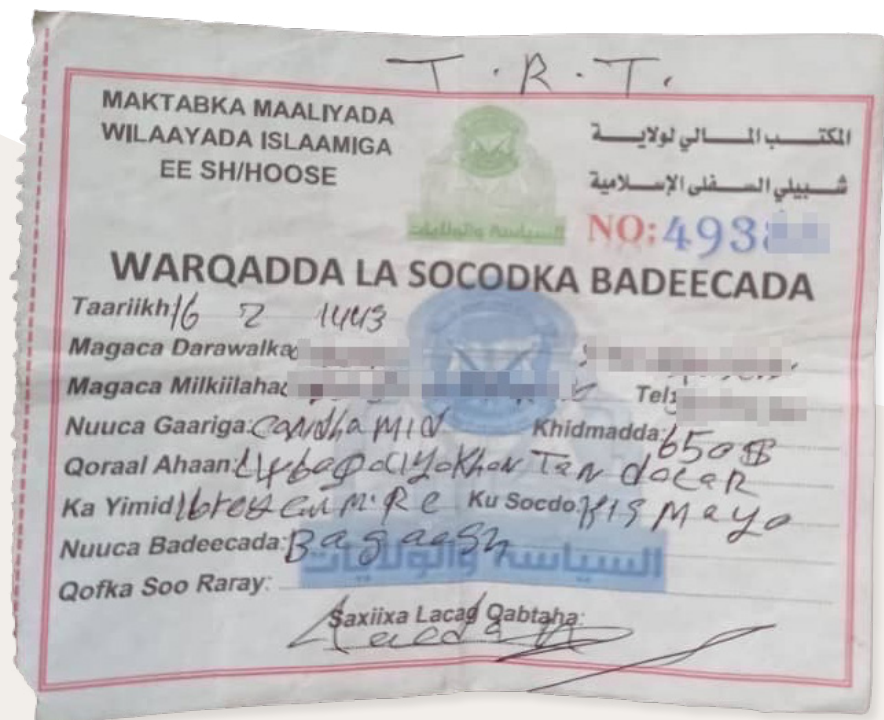 T. R. T.
MAKTABKA MAALIYADA
WILAAYADA ISLAAMIGA
EE SH/HOOSE
المكتب المالي لولاية
شبيلي السفلى الإسلامية
السياسة والولايات
NO: 493
WARQADDA LA SOCODKA BADEECADA
Taariikh 16 2 1443
Magaca Darawalka
Magaca Milkiilaha:
Tel:
Nuuca Gaariga: Khidmadda: 650$
Qoraal Ahaan: Tan docar
Ka Yimid Ku Socdo: Kismayo
Nuuca Badeecada: Bagaash
السياسة والولايات
Qofka Soo Raray:
Saxiixa Lacag Qabtaha: